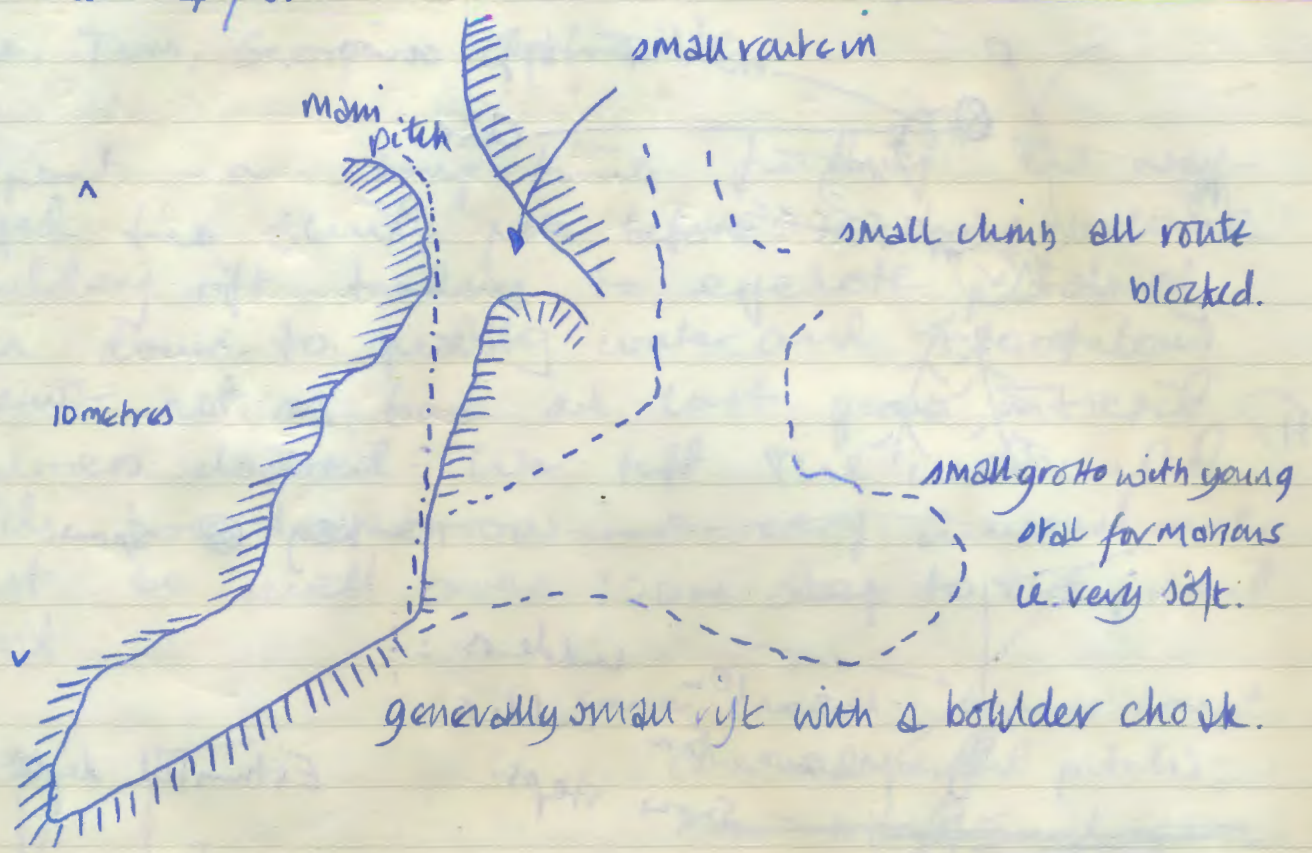 small route in
main
pitch
small climb all route
blocked.
10 metres
small grotto with young
stal formations
ie. very soft.
generally small rift with a boulder choak.